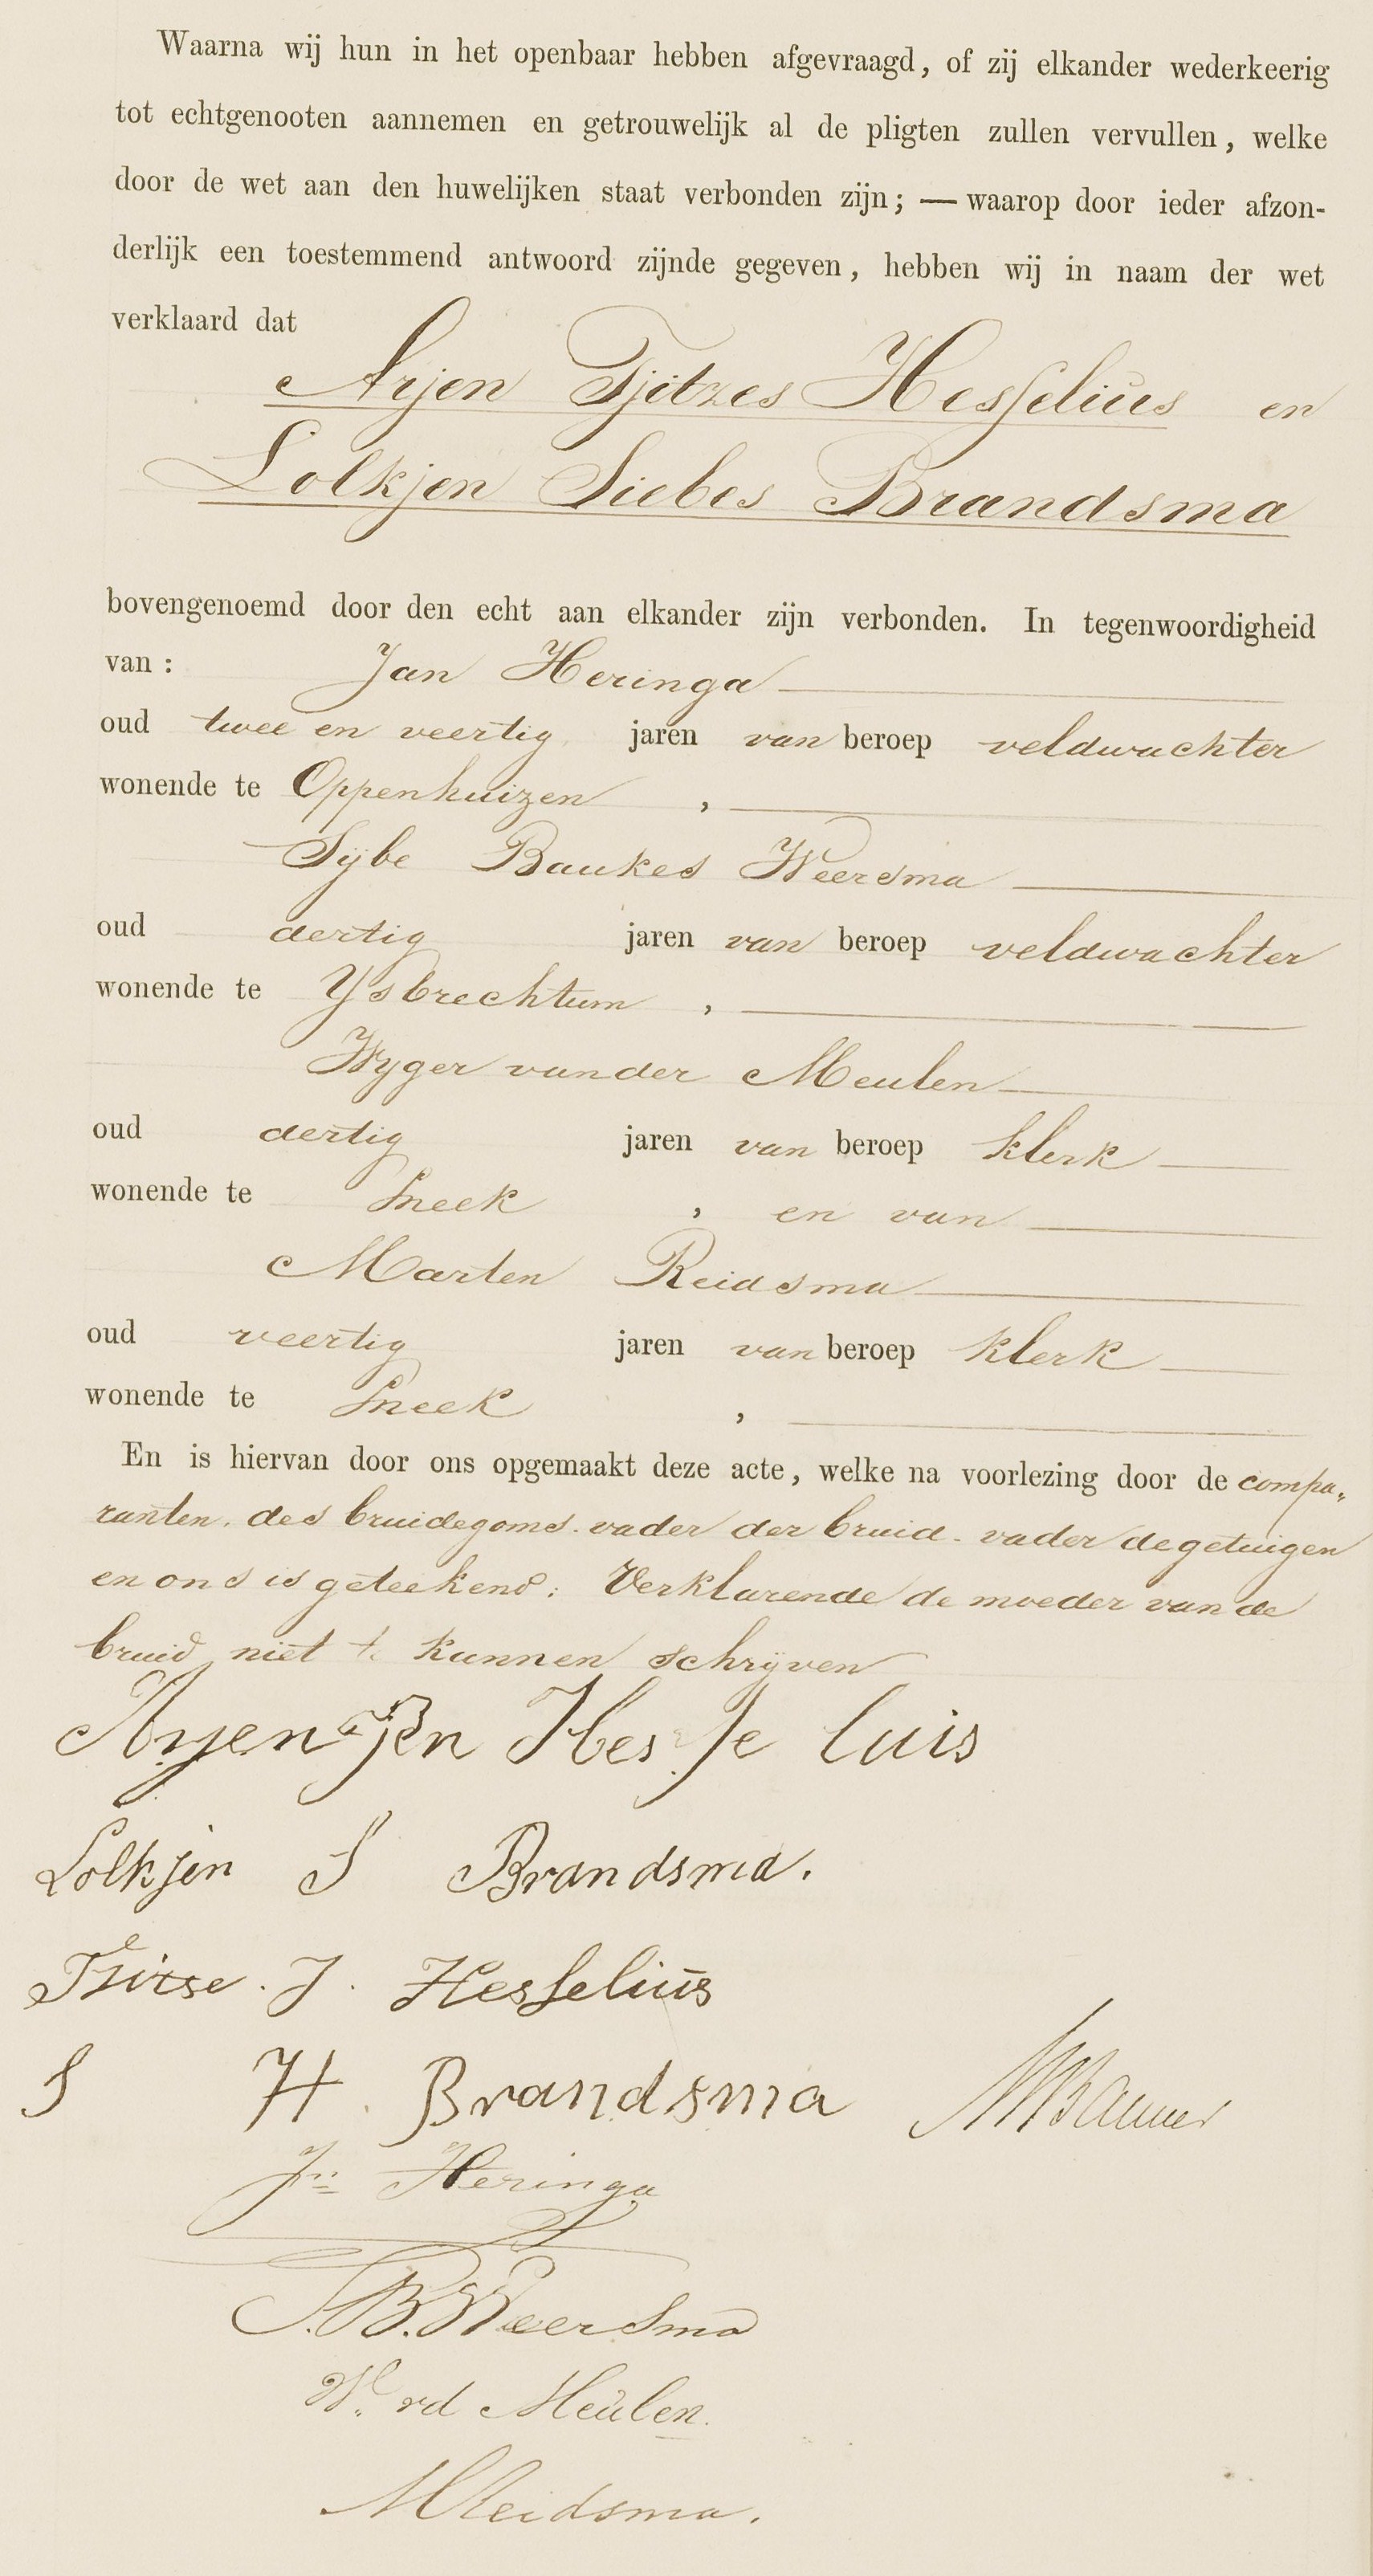 Waarna wij hun in het openbaar hebben afgevraagd, of zij elkander wederkeerig
tot echtgenooten aannemen en getrouwelijk al de pligten zullen vervullen, welke
door de wet aan den huwelijken staat verbonden zijn; — waarop door ieder afzon-
derlijk een toestemmend antwoord zijnde gegeven, hebben wij in naam der wet
verklaard dat
Arjen Tjitzes Hesselius en
Lolkjen Siebes Brandsma
bovengenoemd door den echt aan elkander zijn verbonden. In tegenwoordigheid
van: Jan Heringa
oud twee en veertig jaren van beroep veldwachter
wonende te Oppenhuizen,
Sijbe Baukes Weersma
oud dertig jaren van beroep veldwachter
wonende te Ysbrechtum,
Wyger vander Meulen
oud dertig jaren van beroep klerk
wonende te Sneek, en van
Marten Reidsma
oud veertig jaren van beroep klerk
wonende te Sneek,
En is hiervan door ons opgemaakt deze acte, welke na voorlezing door de compa„
ranten. des bruidegoms. vader der bruid. vader de getuigen
en ons is geteekend: Verklarende de moeder van de
bruid niet te kunnen schrijven
Aryen Hesse luis
Lolkjen S Brandsma.
J. Hesselius
S H. Brandsma
Jn Heringa
S.B. Weersma
W. vd Meulen.
MReidsma.